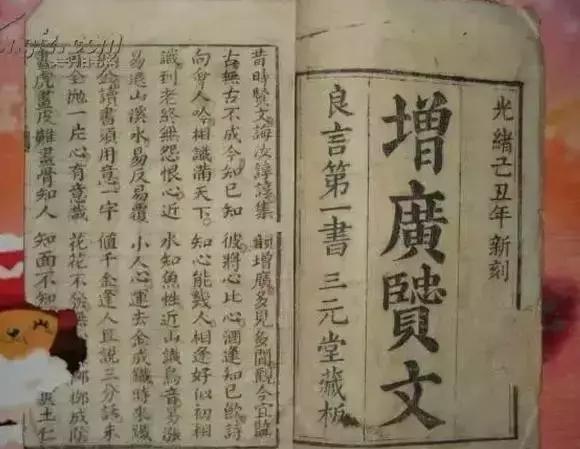 光緒己丑年新刻
增廣賢文
良言第一書 三元堂藏板
昔時賢文誨汝諄諄集韻增廣多見多聞觀今宜監
古無古不成今知己知彼將心比心酒逢知己飲詩
向會人吟相識滿天下知心能幾人相逢好似初相
識到老終無怨恨心近水知魚性近山識鳥音易漲
易退山溪水易反易覆小人心運去金成鐵時來鐵
金讀書須用意一字值千金逢人且說三分話未
全拋一片心有意栽花花不發無柳成陰
畫虎畫皮難畫骨知人知面不知土仁